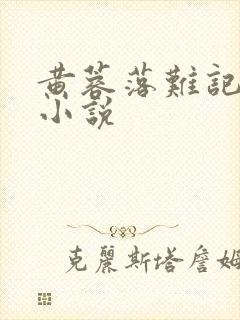 黄蓉落難記
小說
克麗斯塔詹姆